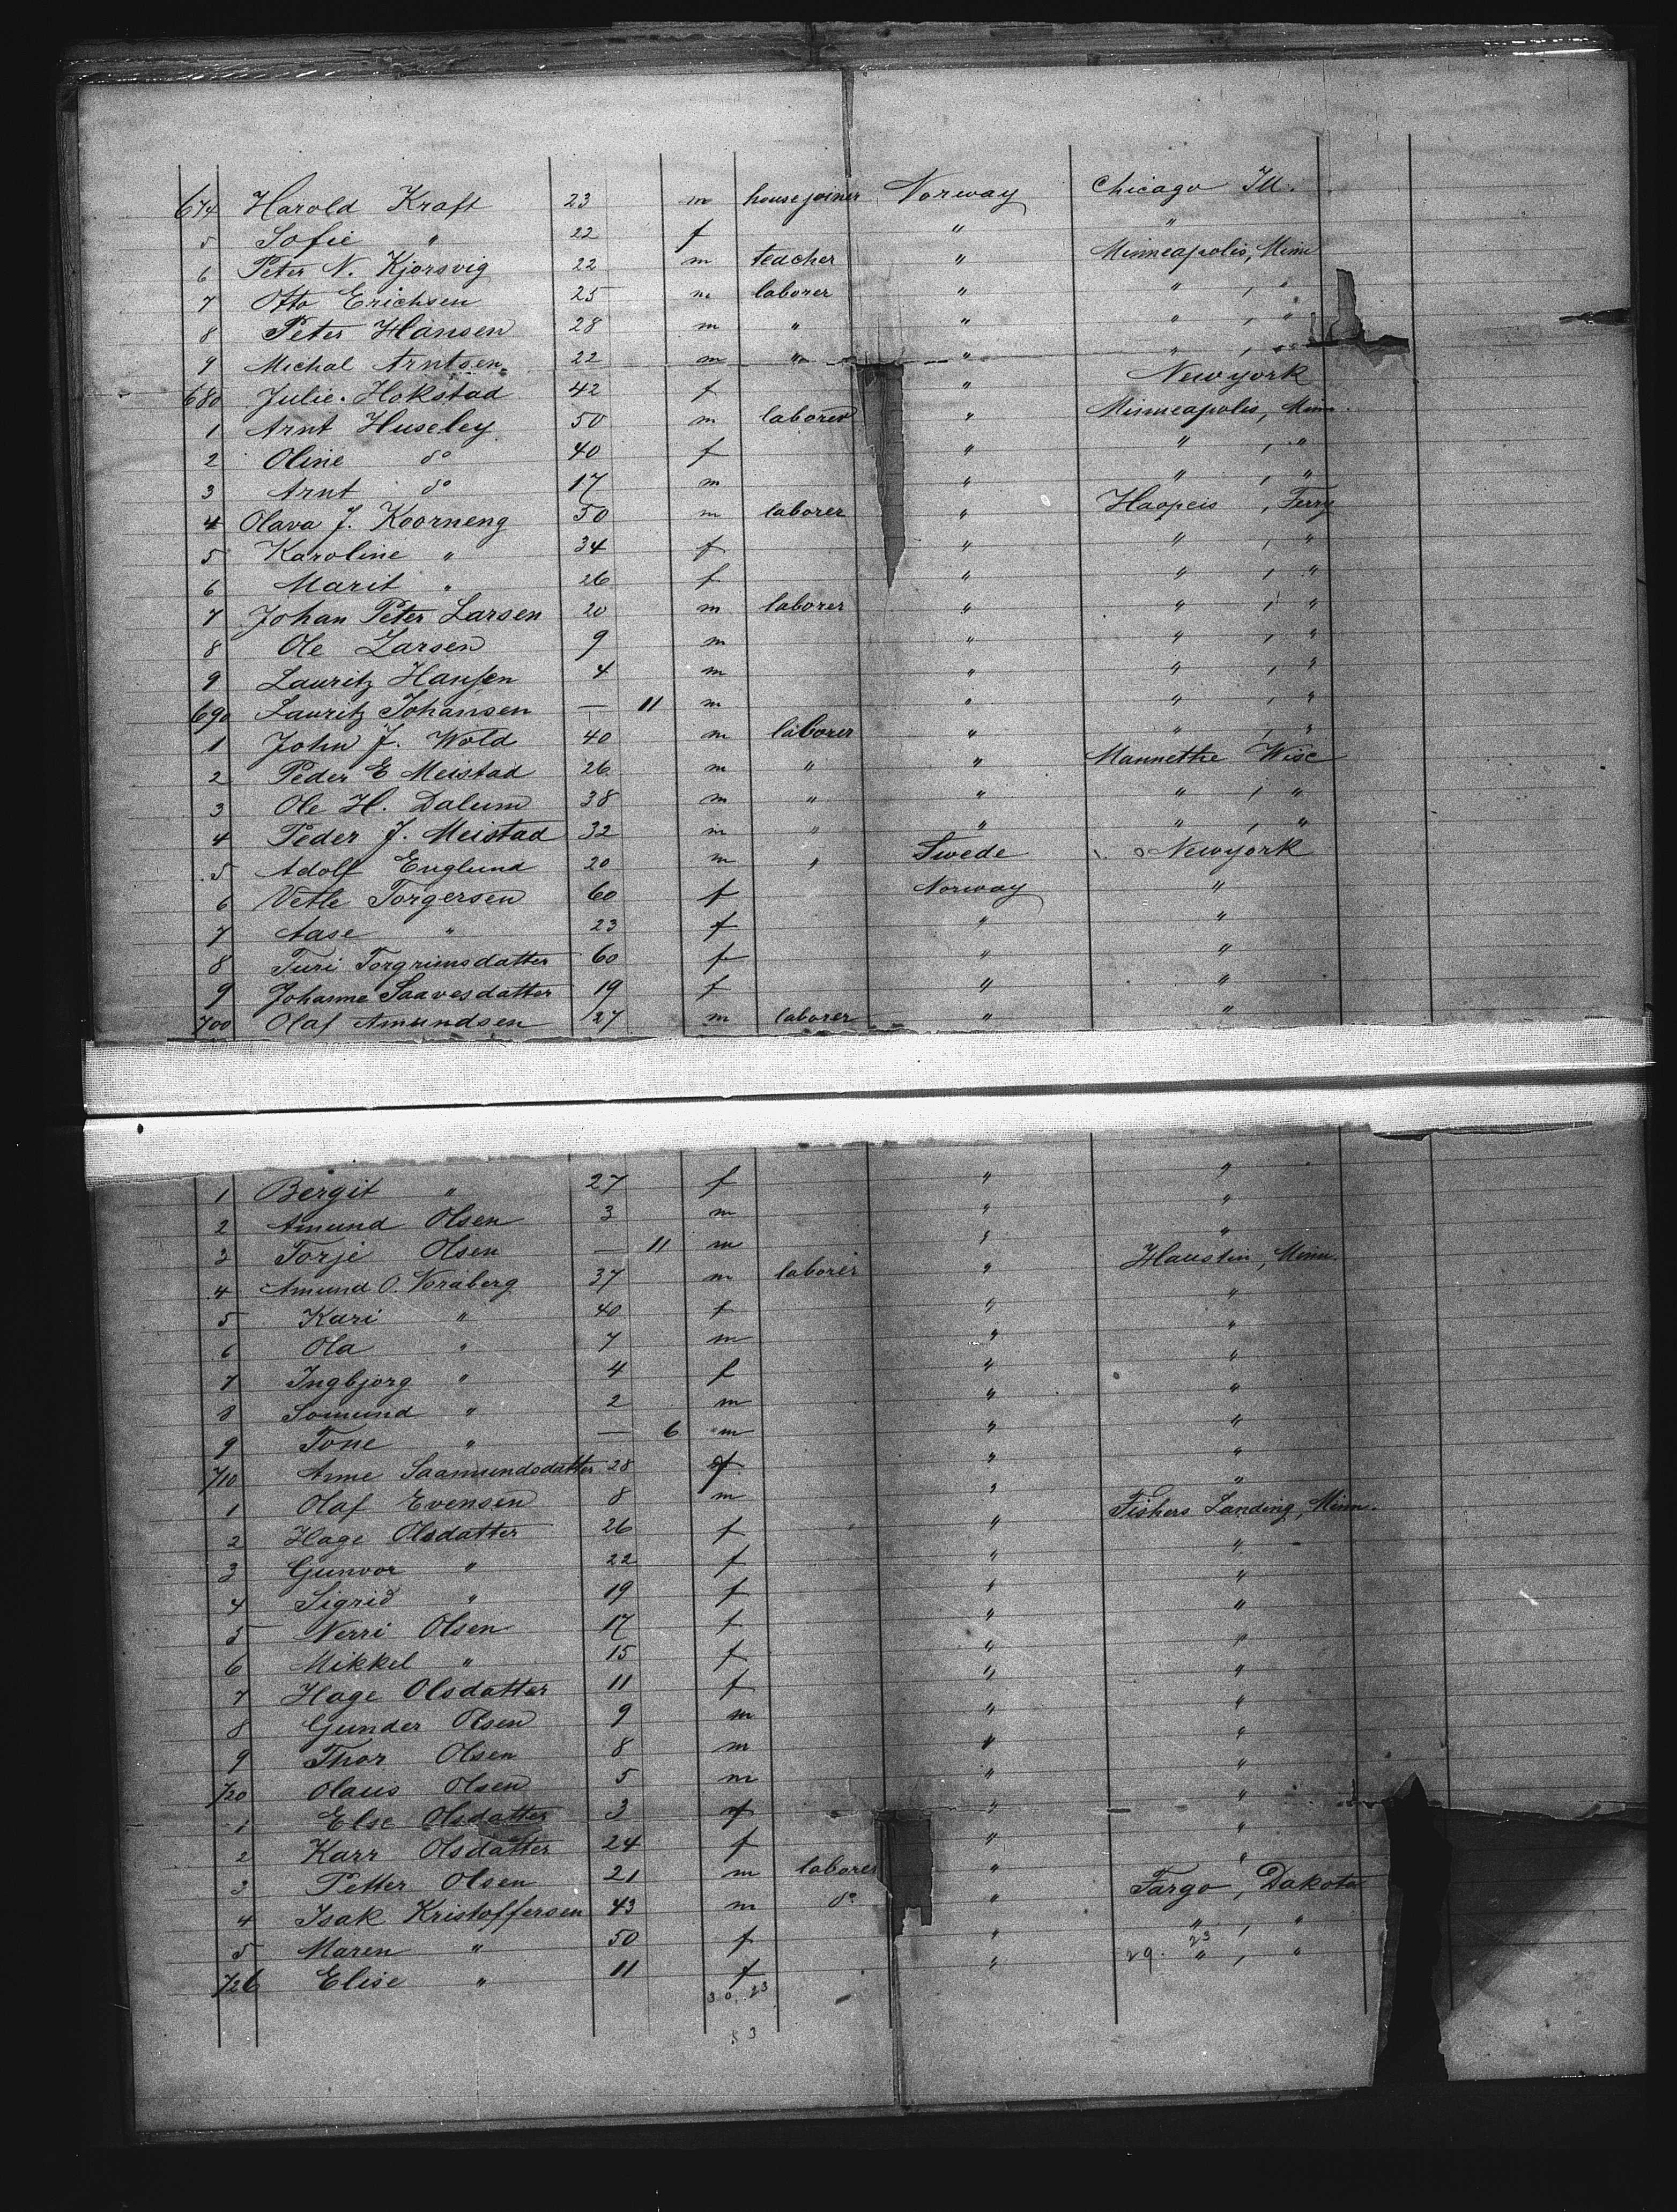 674 Harold Kraft 23 m housejoiner Norway Chicago Ill.
5 Sofie " 22 f " "
6 Peter N. Kjorsvig 22 m teacher " Minneapolis, Minn
7 Otto Erichsen 25 m laborer " " , "
8 Peter Hansen 28 m " " " , "
9 Michal Arntsen 22 m " " " , "
680 Julie Hokstad 42 f " Newyork
1 Arnt Huseley 50 m laborer " Minneapolis, Minn.
2 Oline do 40 f " " , "
3 Arnt do 17 m " " , "
4 Olava J. Koorneng 50 m laborer " Haopeis , Ferry
5 Karoline " 34 f " " , "
6 Marit " 26 f " " , "
7 Johan Peter Larsen 20 m laborer " " , "
8 Ole Larsen 9 m " " , "
9 Lauritz Hansen 4 m " " , "
690 Lauritz Johansen — 11 m " " , "
1 John J. Wold 40 m laborer " " , "
2 Peder E Meistad 26 m " " Mannethe Wisc
3 Ole H. Dalum 38 m " " " , "
4 Peder J. Meistad 32 m " " " , "
5 Adolf Englund 20 m " Swede Newyork
6 Vetle Torgersen 60 f Norway "
7 Aase " 23 f " "
8 Turi Torgrimsdatter 60 f " "
9 Johanne Saavesdatter 19 f " "
700 Olaf Amundsen 27 m laborer " "
1 Bergit " 27 f " "
2 Amund Olsen 3 m " "
3 Torje Olsen — 11 m " "
4 Amund O. Voraberg 37 m laborer " Haustin, Minn.
5 Kari " 40 f " "
6 Ola " 7 m " "
7 Ingbjorg " 4 f " "
8 Somund " 2 m " "
9 Tone " — 6 m " "
710 Anne Saamundsdatter 28 f " "
1 Olaf Evensen 8 m " "
2 Hage Olsdatter 26 f " Fishers Landing, Minn.
3 Gunvor " 22 f " "
4 Sigrid " 19 f " "
5 Nerri Olsen 17 f " "
6 Mikkel " 15 f " "
7 Hage Olsdatter 11 f " "
8 Gunder Olsen 9 m " "
9 Thor Olsen 8 m " "
720 Olaus Olsen 5 m " "
1 Else Olsdatter 3 f " "
2 Karr Olsdatter 24 f " "
3 Petter Olsen 21 m laborer " "
4 Isak Kristoffersen 43 m do " Fargo, Dakota
5 Maren " 50 f " " , "
726 Elise " 11 f " 29. 23 " , "
30. 23
53